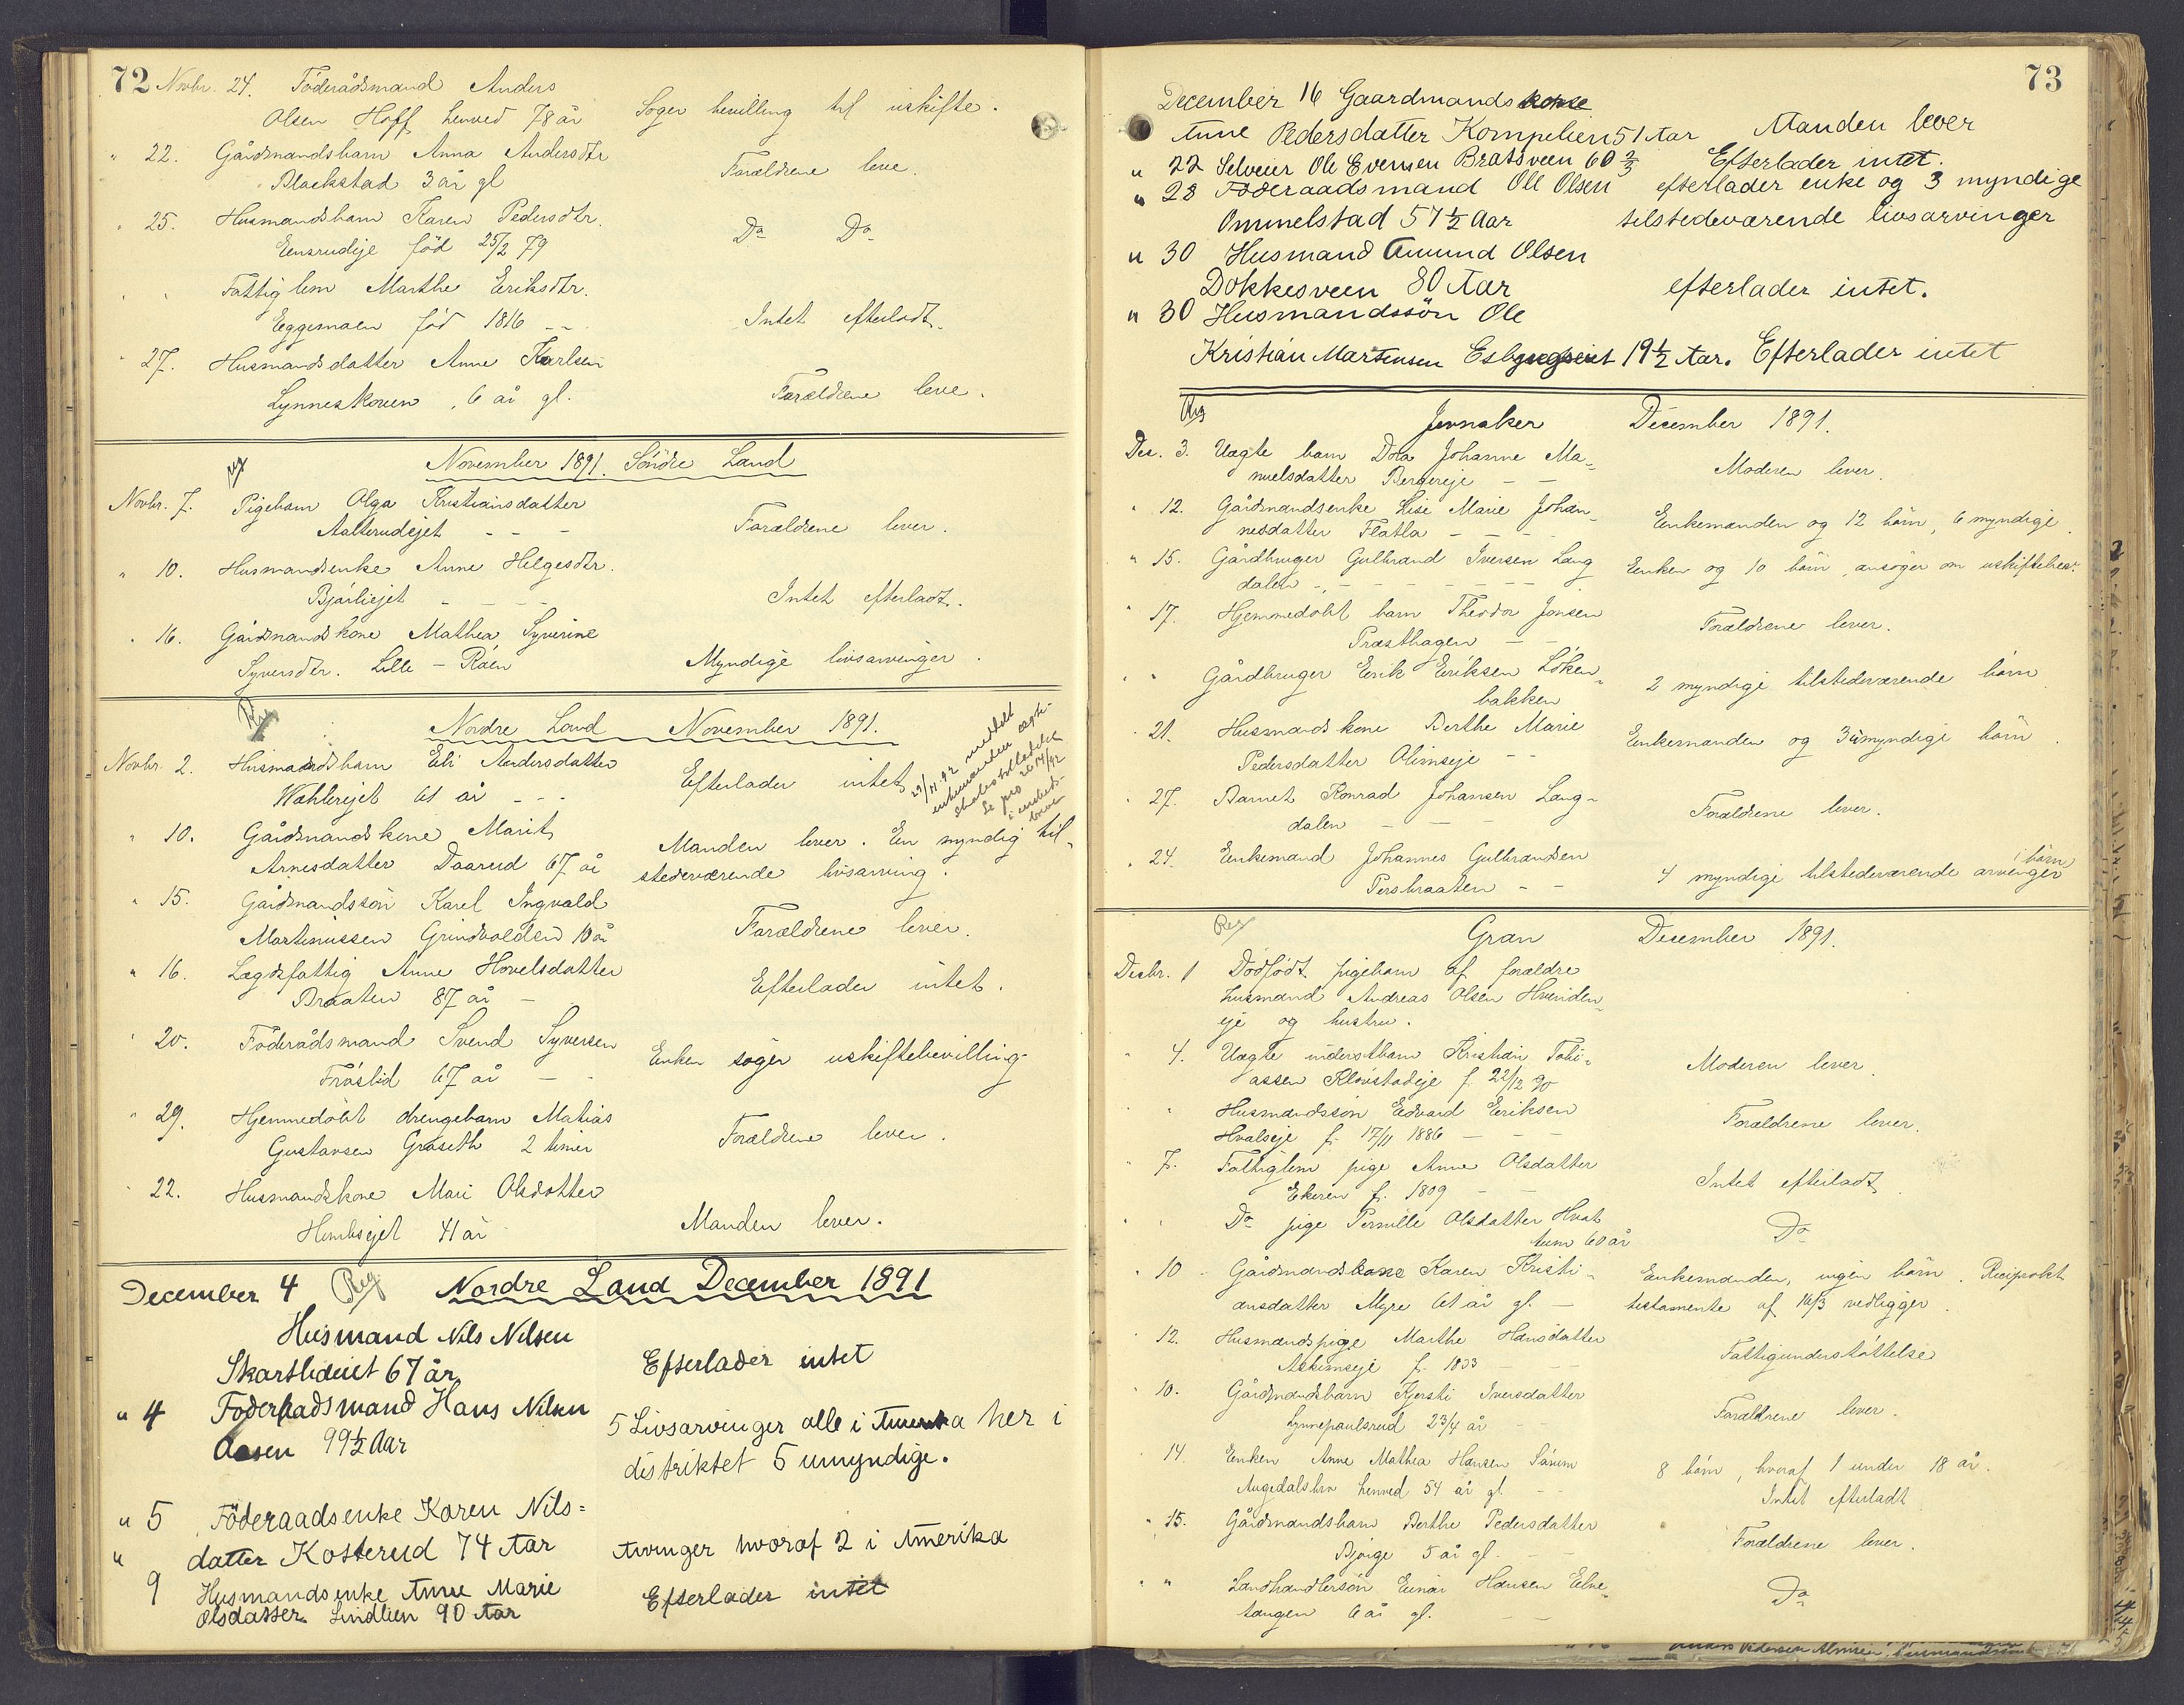 72 Novbr. 24. Föderådsmand Anders
Olsen Hoff henved 78 år Söger bevilling til uskifte.
" 22. Gårdmandsbarn Anna Andersdtr
Blackstad 3 år gl Forældrene leve.
" 25. Husmandsbarn Karen Pedersdtr.
Eensrudeje föd 25/2 79 Do Do
" " Fattiglem Marthe Eriksdtr.
Eggemoen föd 1816 -- Intet efterladt.
" 27. Husmandsdatter Anne Karlsen
Lynneskoven, 6 år gl. Forældrene leve.
Reg November 1891. Söndre Land
Novbr. 7. Pigebarn Olga Kristiansdatter
Aalterudejet - - - Forældrene lever.
" 10. Husmandsenke Anne Helgesdtr.
Bjørliejet - - - Intet efterladt.
" 16. Gårdmandskone Mathea Syverine
Syversdtr. Lille-Röen Myndige livsarvinger.
Reg Nordre Land November 1891.
Novbr. 2. Husmandsbarn Eli Andersdatter
Wøhlerejet 61 år - - - Efterlader intet
29/11.92 meddelt
enkemanden ægte-
skabstilladelse
" 10. Gårdmandskone Marit
Arnesdatter Daarud 67 år
Manden lever. En myndig til-
stedeværende livsarving.
" 15. Gårdmandssön Karel Ingvald
Martinussen Grindvolden 10 år Forældrene lever.
" 16. Lægdsfattig Anne Hovelsdatter
Braaten 87 år - Efterlader intet.
" 20. Föderådsmand Svend Syversen
Fröslid 67 år - - Enken söger uskiftebevilling
" 29. Hjemmedöbt drengebarn Matias
Gustavsen Gråseth 2 timer Forældrene lever.
" 22. Husmandskone Mari Olsdotter
41 år Manden lever.
December 4 Reg Nordre Land December 1891
Husmand Nils Nilsen
Skartlideiet 67 år Efterlader intet
" 4 Foderaadsmand Hans Nilsen
Aasen 99½ Aar
5 Livsarvinger alle i Amerika her i
distriktet 5 umyndige.
" 5 Föderaadsenke Karen Nils=
" datter Kosterud 74 Aar Arvinger hvoraf 2 i Amerika
9 Husmandsenke Anne Marie
Olsdatter Lindlien 90 Aar Efterlader intet
73
December 16 Gaardmandskone
Anne Pedersdatter Kompelien 51 Aar Manden lever
" 22 Selveier Ole Evensen Bratsveen 60 ⅔ Efterlader intet.
" 28 Föderaadsmand Ole Olsen efterlader enke og 3 myndige
Ommelstad 57½ Aar tilstedeværende livsarvinger
" 30 Husmand Amund Olsen
Dokkesveen 80 Aar efterlader intet.
" 30 Husmandssön Ole
Kristian Martinsen 19½ Aar. Efterlader intet
Reg Jevnaker December 1891.
Dec. 3. Uægte barn Dora Johanne Ma-
nuelsdatter Bergereje - - Moderen lever.
" 12. Gårdmandsenke Lise Marie Johan-
nesdatter Flatla - - - Enkemanden og 12 börn, 6 myndige.
" 15. Gårdbruger Gulbrand Iversen Lang
dalen - - - Enken og 10 börn, ansöger om uskiftebev.
" 17. Hjemmedöbt barn Theodor Jonsen
Præsthagen - - Forældrene lever.
" " Gårdbruger Erik Eriksen Löken-
bakken 2 myndige tilstedeværende börn
" 21. Husmandskone Berthe Marie
Pedersdatter Olimseje - - Enkemanden og 3 umyndige börn.
" 27. Barnet Konrad Johansen Lang-
dalen - - - Forældrene lever.
" 24. Enkemand Johannes Gulbrandsen
Persbraaten - - 4 myndige tilstedeværende arvinger
i börn
Reg Gran December 1891.
Decbr. 1 Dödfödt pigebarn af forældre
husmand Andreas Olsen Hvinden-
eje og hustru.
" 4. Uægte inderstbarn Kristian Tobi-
assen Klövstadeje f. 22/12 90 Moderen lever.
" " Husmandssön Edvard Eriksen
Hvalseje f. 17/11 1886 - - - Forældrene lever.
" 7. Fattiglem pige Anne Olsdatter
Ekeren f. 1809 - - Intet efterladt.
" " Do pige Pernille Olsdatter Hvat
tum 60 år Do
" 10 - Gårdmandskone Karen Kristi-
ansdatter Myre 61 år gl. -
Enkemanden, ingen börn. Reciprokt
testamente af 16/3 vedligger.
" 12. Husmandspige Marthe Hansdatter
Askimseje f. 1833 - - - Fattigunderstöttelse
" 10. Gårdmandsbarn Kjersti Iversdatter
Lynnepaulsrud 2 3/4 år - - Forældrene lever.
" 14. Enken Anne Mathea Hansen Sörum
Augedalsbro henved 54 år gl - -
8 börn, hvoraf 1 under 18 år.
Intet efterladt
" 15. Gårdmandsbarn Berthe Pedersdatter
Bjørge 5 år gl. - - Forældrene lever.
" " Landhandlersön Einar Hansen Elve-
tangen 6 år gl. - - Do